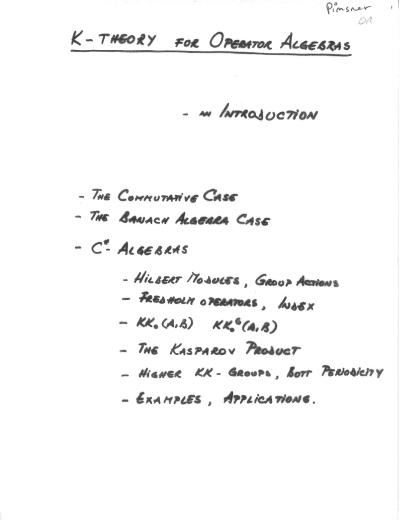 Pimsner
OA
K-THEORY FOR OPERATOR ALGEBRAS
- AN INTRODUCTION
- THE COMMUTATIVE CASE
- THE BANACH ALGEBRA CASE
- C*- ALGEBRAS
- HILBERT MODULES, GROUP ACTIONS
- FREDHOLM OPERATORS, INDEX
- KK₀(A,B) KK₀ᴳ(A,B)
- THE KASPAROV PRODUCT
- HIGHER KK-GROUPS, BOTT PERIODICITY
- EXAMPLES, APPLICATIONS.